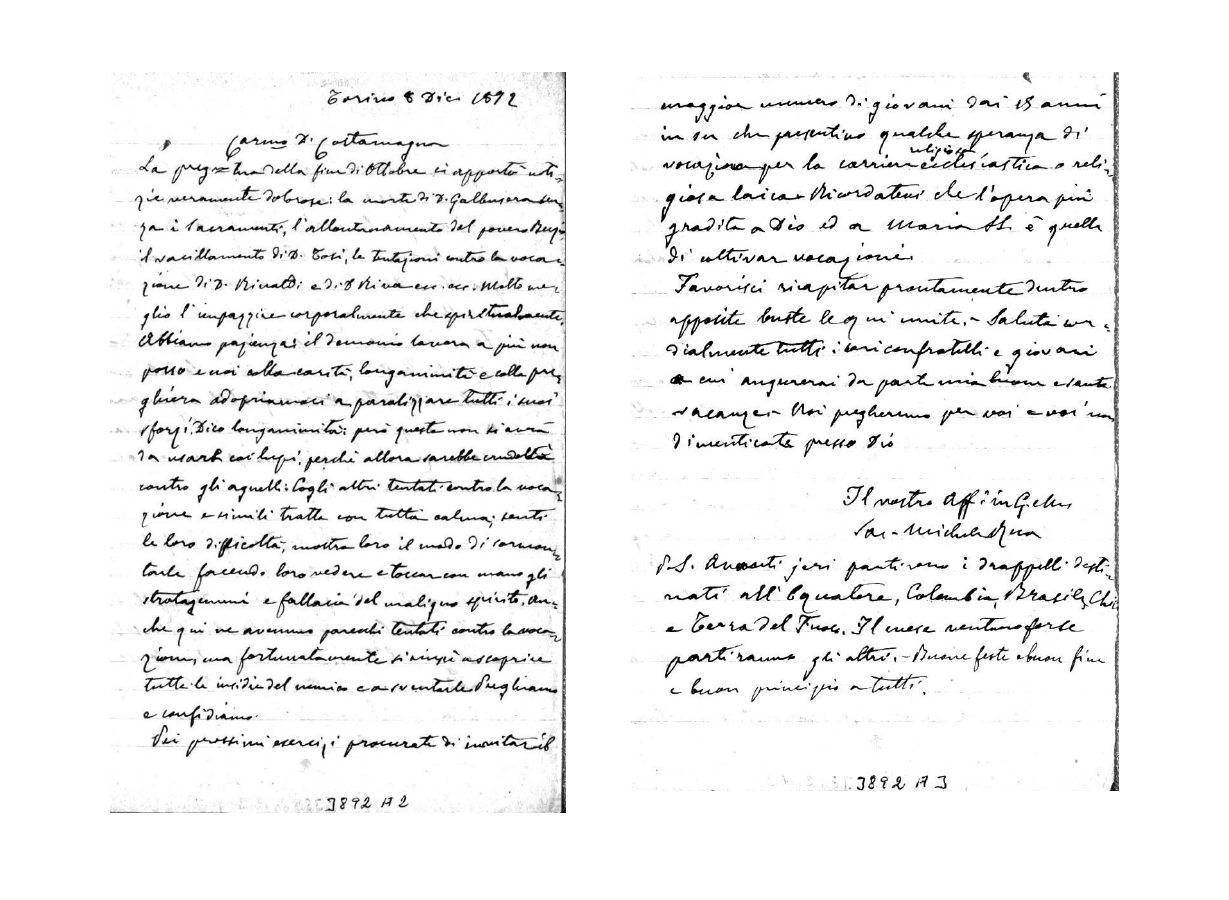 Torino 8 Dic. 1892
Carmo D. Costamagna
La preg. tua della fine di Ottobre ci apportò noti-
zie veramente dolorose: la morte di D. Galbusera sen-
za i Sacramenti, l'allontanamento del povero
il vacillamento di D. Tosi, le tentazioni contro la voca-
zione di D. Rinaldi e di D. Riva ecc. ecc. Molto me-
glio l'impazzire corporalmente che spiritualmente.
Abbiamo pazienza: il demonio lavora a più non
posso e noi colla carità, longanimità e colla pre-
ghiera adopriamoci a paralizzare tutti i suoi
sforzi. Dico longanimità: però questa non si avrà
da usare coi lupi, perchè allora sarebbe crudeltà
contro gli agnelli. Cogli altri tentati contro la voca-
zione e simili tratta con tutta calma; senti
le loro difficoltà, mostra loro il modo di sormon-
tarle facendo loro vedere e toccar con mano gli
stratagemmi e fallacia del maligno spirito. An-
che qui ne avemmo parecchi tentati contro la voca-
zione, ma fortunatamente si riuscì a scoprire
tutte le insidie del nemico e a sventarle. Preghiamo
e confidiamo.
Pei prossimi esercizi procurate di invitar il
3892 A 2
maggior numero di giovani dai 15 anni
in su che presentino qualche speranza di
religiosa
vocazione per la carriera ecclesiastica o reli-
giosa laica. Ricordatevi che l'opera più
gradita a Dio ed a Maria SS. è quella
di coltivar vocazioni.
Favorisci ricapitar prontamente dentro
apposite buste le qui unite. - Saluta cor-
dialmente tutti i cari confratelli e giovani
a cui augurerai da parte mia buone e sante
vacanze. Noi pregheremo per voi e voi non
dimenticate presso Dio
Il vostro Aff. in G. e M.
Sac. Michele Rua
P.S. Avanti jeri partirono i drappelli desti-
nati all'Equatore, Colombia, Brasile, Chi
e Terra del Fuoco. Il mese venturo forse
partiranno gli altri. - Buone feste e buon fine
e buon principio a tutti.
3892 A 3